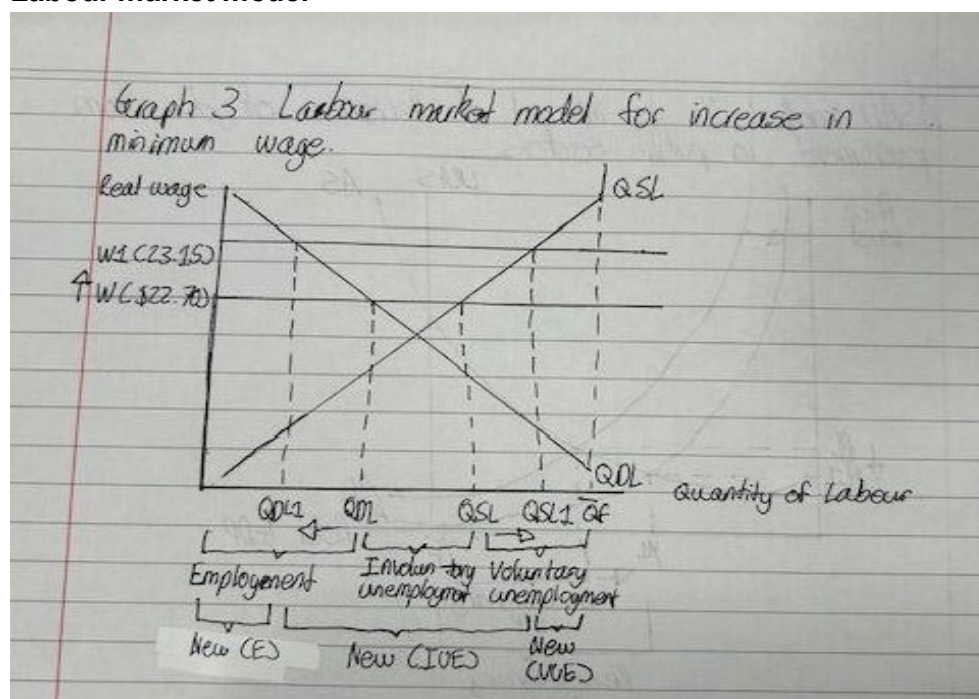 Labour market model
Graph 3 Labour market model for increase in
minimum wage.
Real wage
QSL
W1 (23.15)
W ($22.70)
QDL
Quantity of Labour
QDL1 QDL QSL QSL1 Qf
Employment Involuntary Voluntary
unemployment unemployment
New (E) New (IUE) New
(VUE)